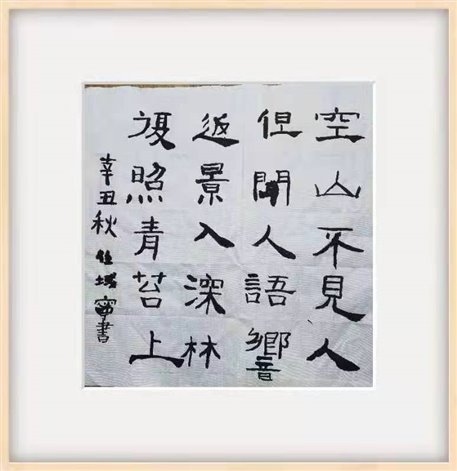 空山不見人
但聞人語響
返景入深林
復照青苔上
辛丑秋 寧書